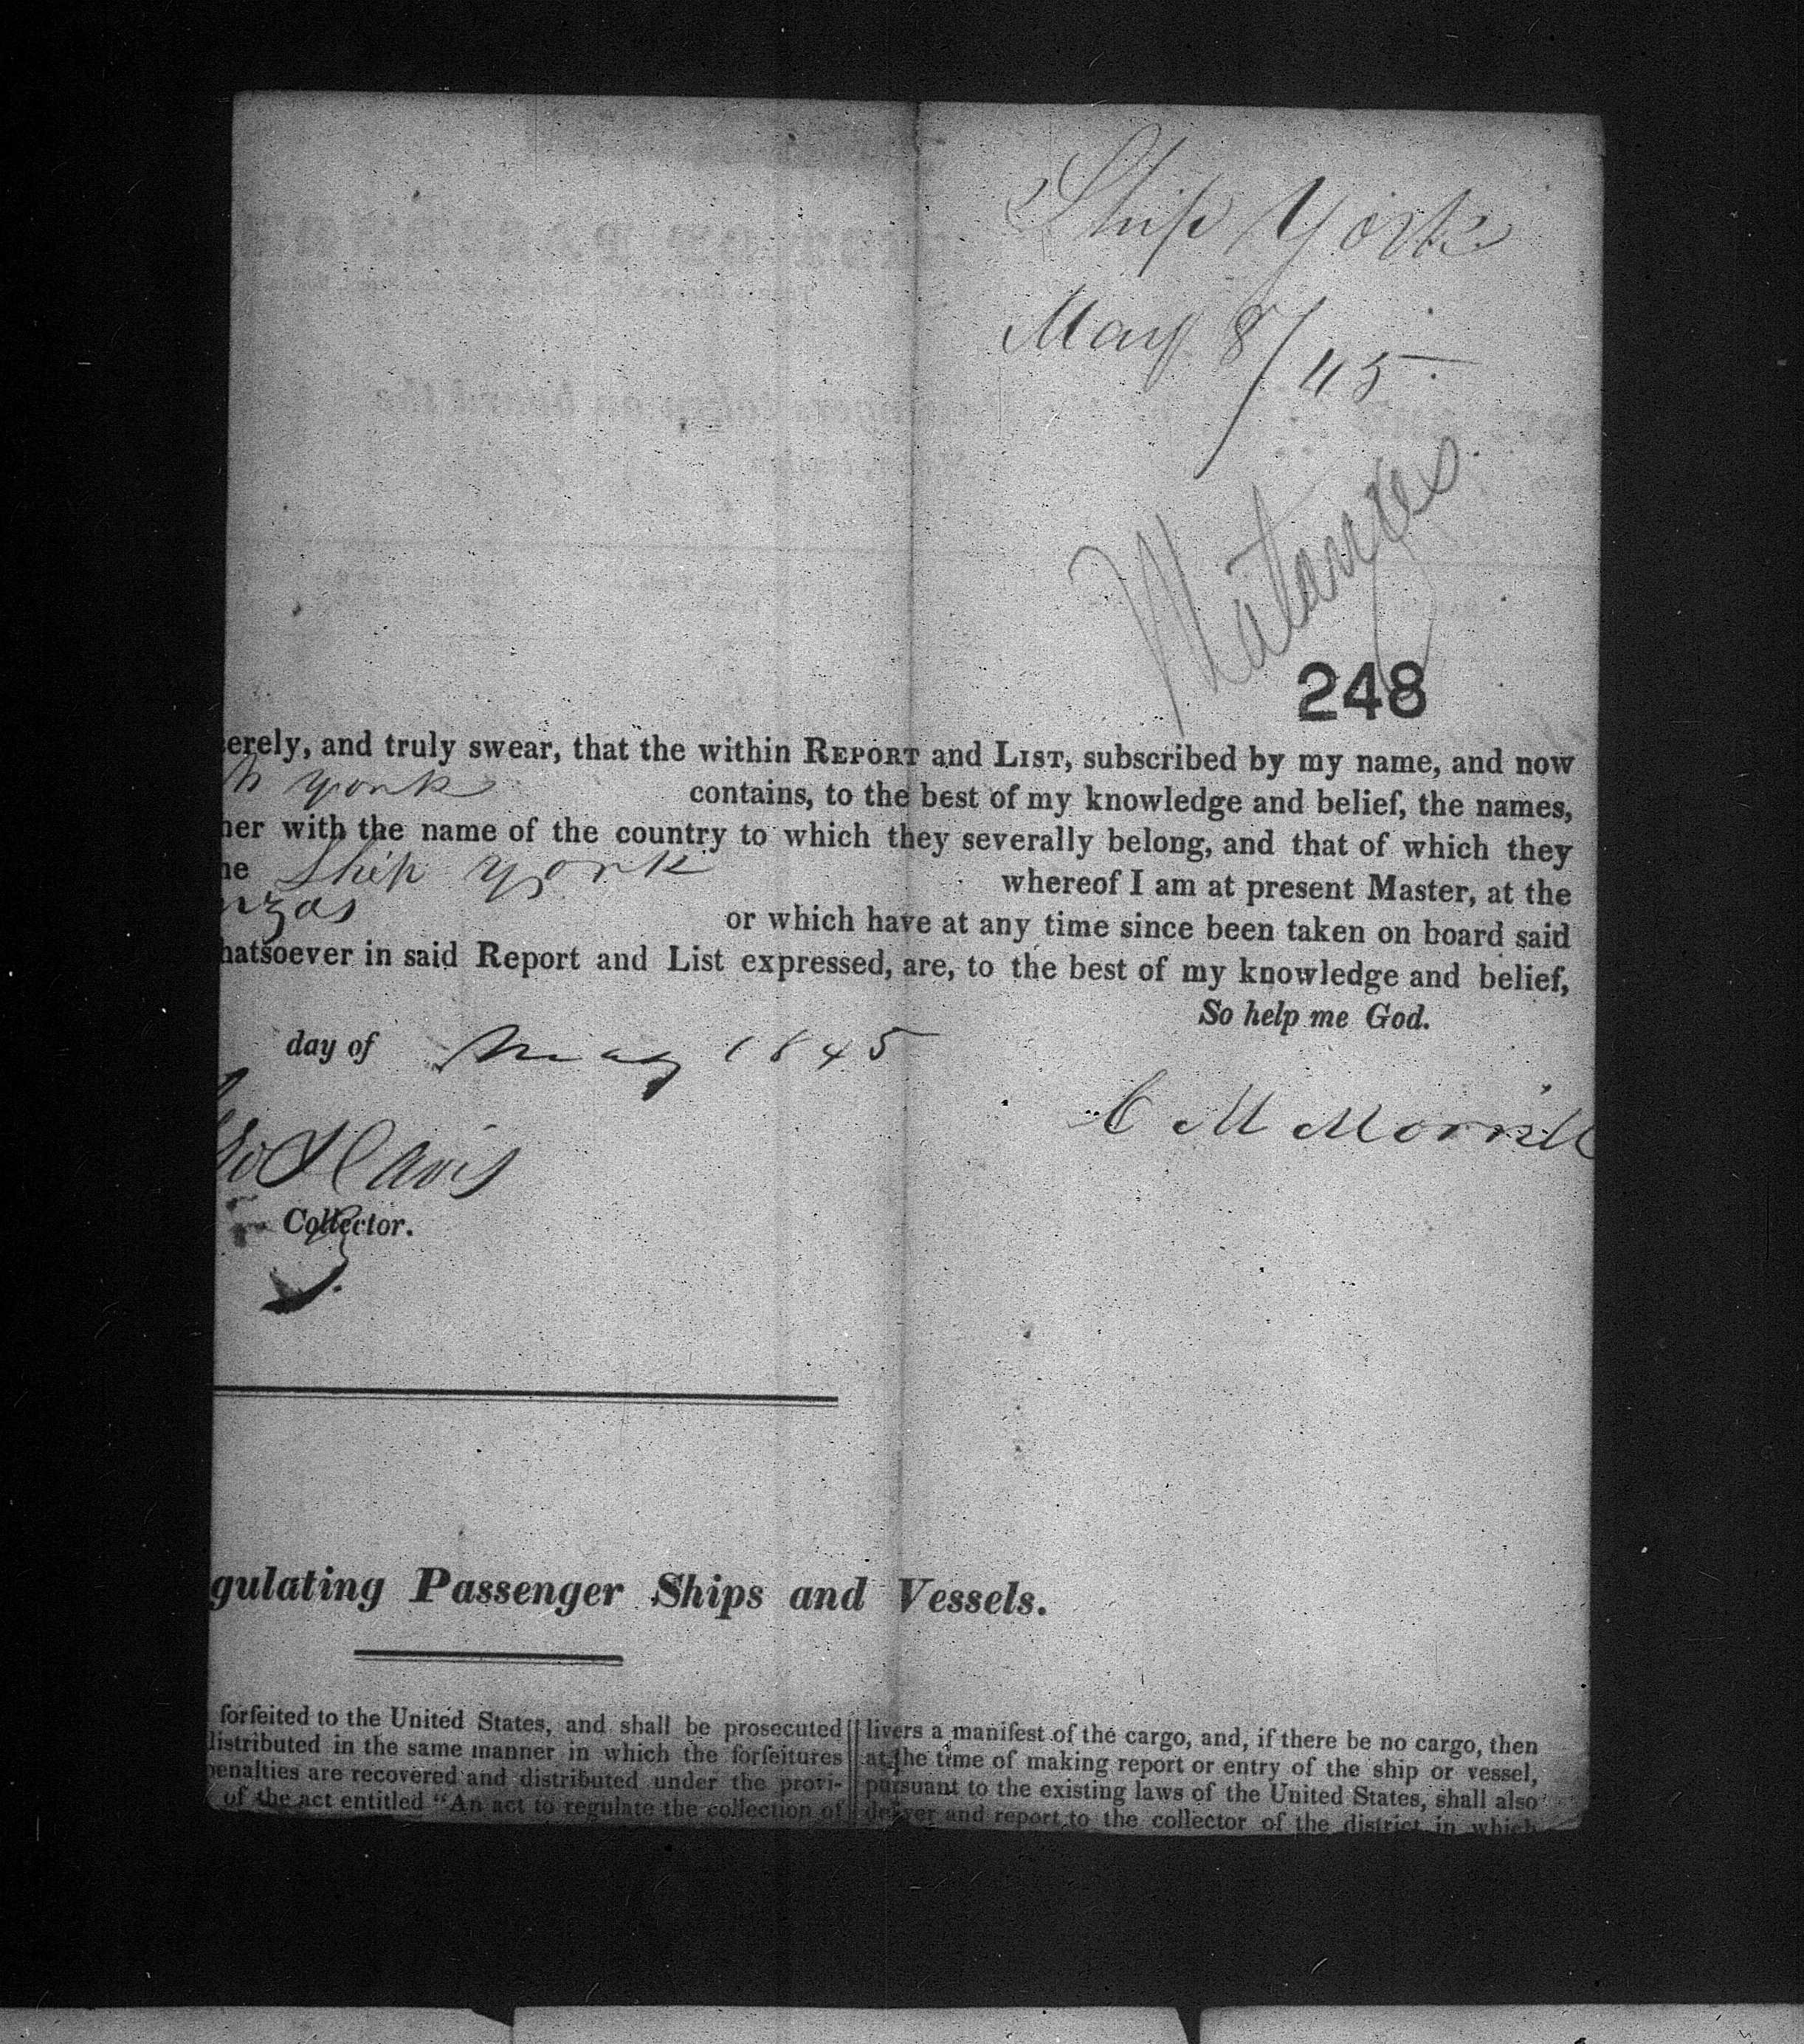 Ship York
May 8/45
Matanzas
248
erely, and truly swear, that the within REPORT and LIST, subscribed by my name, and now
h york contains, to the best of my knowledge and belief, the names,
her with the name of the country to which they severally belong, and that of which they
he Ship york whereof I am at present Master, at the
nzas or which have at any time since been taken on board said
hatsoever in said Report and List expressed, are, to the best of my knowledge and belief,
So help me God.
day of May 1845
C M Morrill
Davis
Collector.
gulating Passenger Ships and Vessels.
forfeited to the United States, and shall be prosecuted
distributed in the same manner in which the forfeitures
penalties are recovered and distributed under the provi-
of the act entitled "An act to regulate the collection of
livers a manifest of the cargo, and, if there be no cargo, then
at the time of making report or entry of the ship or vessel,
pursuant to the existing laws of the United States, shall also
deliver and report to the collector of the district in which